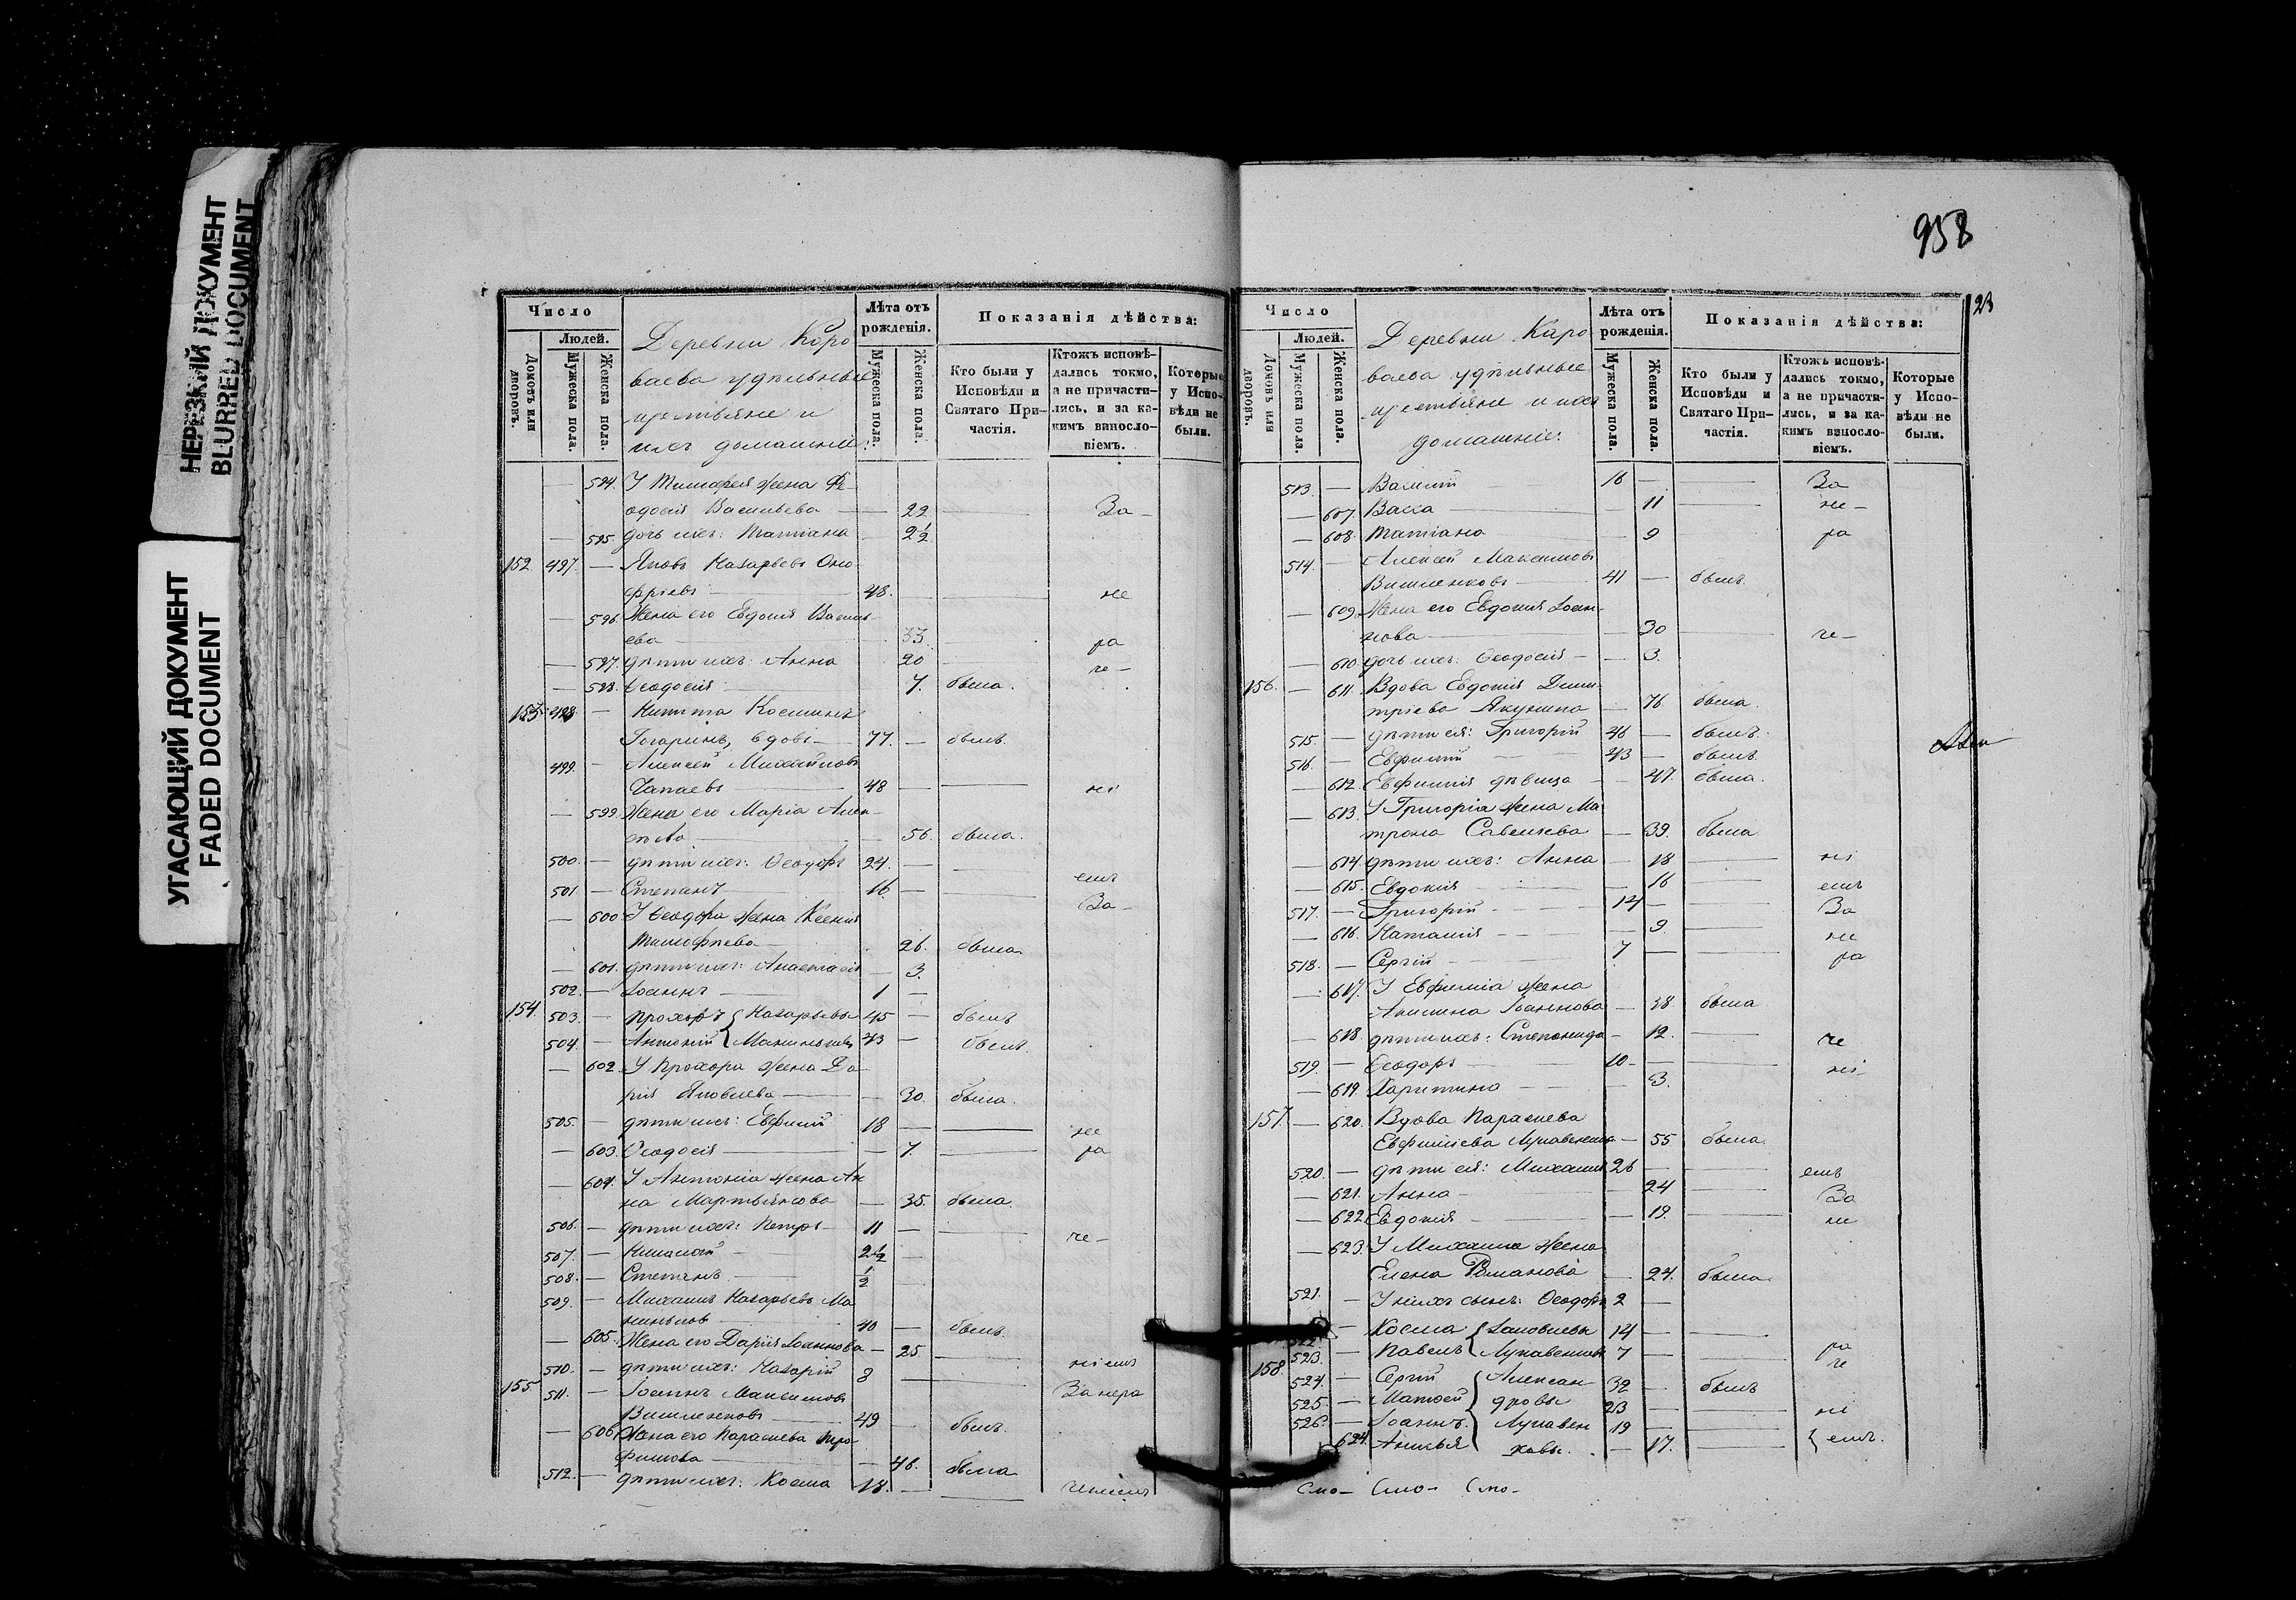 НЕРЕЗКИЙ ДОКУМЕНТ
BLURRED DOCUMENT
УГАСАЮЩИЙ ДОКУМЕНТ
FADED DOCUMENT
Число
Людей.
Домовъ или дворовъ.
Мужеска пола.
Женска пола.
Деревни Коро
ваева удѣльные
крестьяне и
ихъ домашніе:
Лѣта отъ рожденія.
Мужеска пола.
Женска пола.
Показанія дѣйства:
Кто были у Исповѣди и Святаго Причастія.
Ктожъ исповѣдались токмо, а не причастились, и за какимъ винословіемъ.
Которые у Исповѣди не были.
— 594. У Тимофея жена Ѳе
одосія Васильева — 22 — За —
— 595. дочь ихъ: Татіана 2½
152. 497. — Яковъ Назарьевъ Оно
фріевъ — 48. — не
— 596. Жена его Евдокія Василь
ева — 33 — ра
— 597. дѣти ихъ: Анна 20 — че —
— 598. Ѳеодосія — 7. была.
153. 498. — Никита Косминъ
Гогаринъ, вдовъ — 77. — былъ.
499. — Алексей Михайловъ
Чапаевъ — 48 — — ні
— 599. Жена его Марія
— 56. была.
500. — дѣти ихъ: Ѳеодоръ 24. — — емъ
501. — Степанъ — 16. — — За —
— 600 У Ѳеодора жена Ксенія
Тимофѣева — 26. была
— 601. дѣти ихъ: Анастасія — 3.
502. — Іоаннъ — 1 —
154. 503. — Прохоръ { Назарьевы 45 — былъ
504. — Антоній { 43 — былъ.
— 602. У Прохора жена Да
рія Яковлева — — 30. была.
505. — дѣти ихъ: Евфимій 18 — — не
— 603. Ѳеодосія — — 7. — ра
— 604. У Антонія жена Ан
на Мартьянова — 35. была.
506. — дѣти ихъ: Петръ — 11 — — че —
507. — Николай — 2½ —
508. — Степанъ — ½ —
509. — Михаилъ Назарьевъ Ма
40 — былъ.
— 605. Жена его Дарія Іоаннова — 25. — ніемъ
510. — дѣти ихъ: Назарій 8 — — За нера
155. 511. — Іоаннъ Максимовъ
Вишленковъ — 49 — былъ.
— 606 Жена его Параскева Тро
фимова — — 46. была
512. — дѣти ихъ: Косма 18. — — ченіемъ
958
23
Число
Людей.
Домовъ или дворовъ.
Мужеска пола.
Женска пола.
Деревни Каро
ваева удѣльные
крестьяне и ихъ
домашніе:
Лѣта отъ рожденія.
Мужеска пола.
Женска пола.
Показанія дѣйства:
Кто были у Исповѣди и Святаго Причастія.
Ктожъ исповѣдались токмо, а не причастились, и за какимъ винословіемъ.
Которые у Исповѣди не были.
513. — 16 — — За
— 607. Васса — 11 — не —
— 608. Татіана — 9 ра
514. — Алексей Максимовъ
Вишленковъ — 41 — былъ.
— 609. Жена его Евдокія Іоан-
нова — — 30 — че —
— 610 дочь ихъ: Ѳеодосія — — 3.
156. — 611. Вдова Евдокія Дими
тріева Якунина — 76 была.
515. — дѣти ея: Григорій 46 — былъ.
516. — Евфимій — 43 — былъ.
— 612. Евфимія дѣвица — — 47. была.
— 613. У Григорія жена Ма
трона Савельева — 39. была
— 614. дѣти ихъ: Анна — 18 — ні
— 615. Евдокія — — 16 — емъ
517. — Григорій — 14 — — За
— 616. Наталія — — 9. — не
518. — Сергій — 7 — — ра
— 617. У Евфимія жена
Акилина Іоаннова — 38 была
— 618. дѣти ихъ: Степанида — 12. — че
519. — Ѳеодоръ — 10 — — ні —
— 619. Харитина — — 3.
157. — 620. Вдова Параскева
Евфиміева — 55 была.
520. — дѣти ея: Михаилъ 26 — — емъ
— 621. Анна — — 24 — За
— 622. Евдокія — — 19. — не
— 623. У Михаила жена
Елена Романова — 24. была.
521. — У нихъ сынъ: Ѳеодоръ 2 —
522. — Косма { Іаковлевы 14 — — ра
523. — Павелъ { 7 — — че
158. 524. — Сергій { Алексан- 32 — былъ
525. — Матѳей { дровы 23 — — ні
526. — Іоаннъ { 19 — —
624. Анисья { — 17. — { емъ.